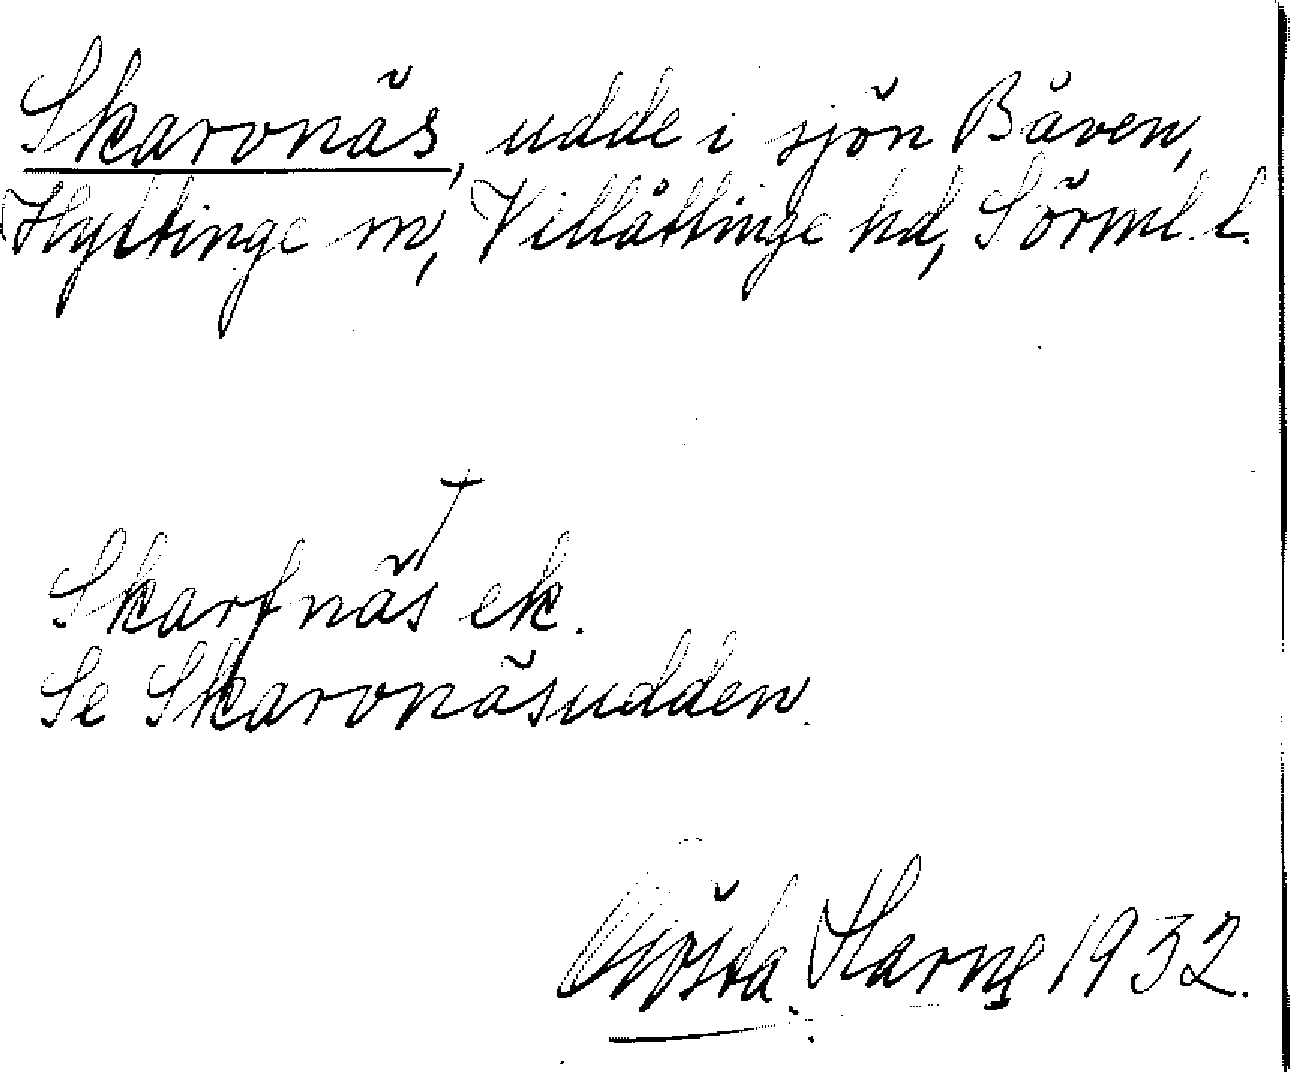 Skarvnäs, udde i sjön Båven,
Hyltinge sn, Villåttinge hd, Sörml. l.
†
Skarfnäs ek.
Se Skarvnäsudden.
1932.